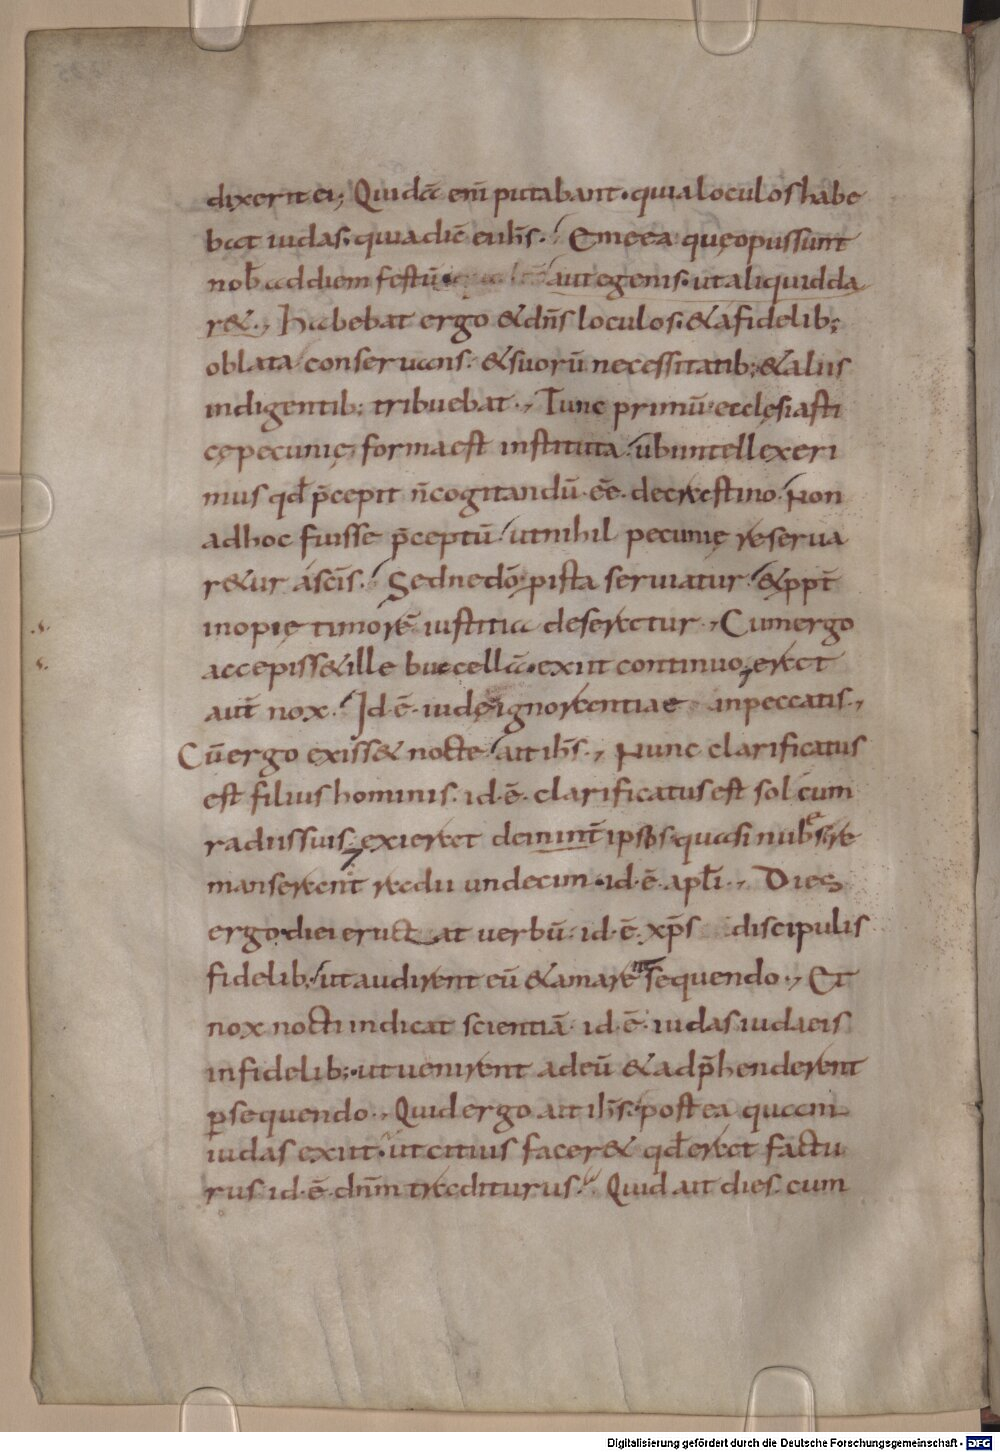 dixerit ei; Quidā eni᷃ putabant· quia loculos habe
bat iudas· quia dic̄ ei ih̄s· Eme ea quę opus sunt
nob̄ ad diem festū aut egenis· ut aliquid da
r&·, Habebat ergo & dn̄s loculos· & a fidelib;
oblata conseruans· & suorū necessitatib; & aliis
indigentib; tribuebat·, Tunc primū ecclęsiasti
cę pecunię forma est instituta· ubi intellexeri
mus qd̄ p̄cepit n̄ cogitandū· ēe· de crastino· Non
ad hoc fuisse p̄ceptū ut nihil pecunię reserua
r&ur a sc̄is· Sed ne dō p ista seruiatur· & ppt̄
inopię timorē iustitia deseratur·, Cum ergo
accepiss& ille buccellā· exiit continuo, erat
aut̄ nox· Id· ē· iudę ignorantiae in peccatis·,
Cū ergo exiss& nocte ait ih̄s·, Nunc clarificatus
est filius hominis· id· ē· clarificatus est sol cum
radiis suis· exierat de inint̄ ipsos· quasi nubes re
manserant radii undecim· id· ē· apl̄i·, Dies
ergo diei eructat uerbū· id· ē· xp̄s discipulis
fidelib; ut audirent eū & amarent sequendo·, Et
nox nocti indicat scientiā· id· ē· iudas iudaeis
infidelib; ut uenirent ad eū & adp̄henderent
p̱sequendo·, Quid ergo ait ih̄s· postea quam
iudas exiit· ut citius facer& qd̄ erat factu
rus id· ē· dn̄m traditurus· Quid ait dies· cum
Digitalisierung gefördert durch die Deutsche Forschungsgemeinschaft - DFG